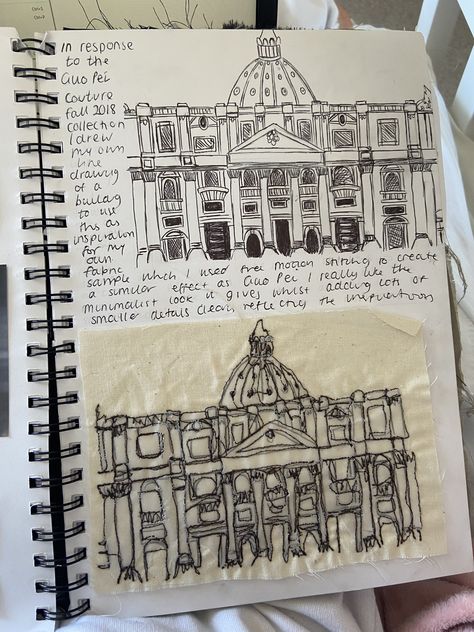 In response
to the
Guo Pei
Couture
fall 2018
collection
I drew
my own
line
drawing
of a
building
to use
this as
inspiration
for my
own
fabric
sample which I used free motion stitching to create
a similar effect as Guo Pei. I really like the
minimalist look it gives whilst adding lots of
smaller details clearly reflecting the inspiration